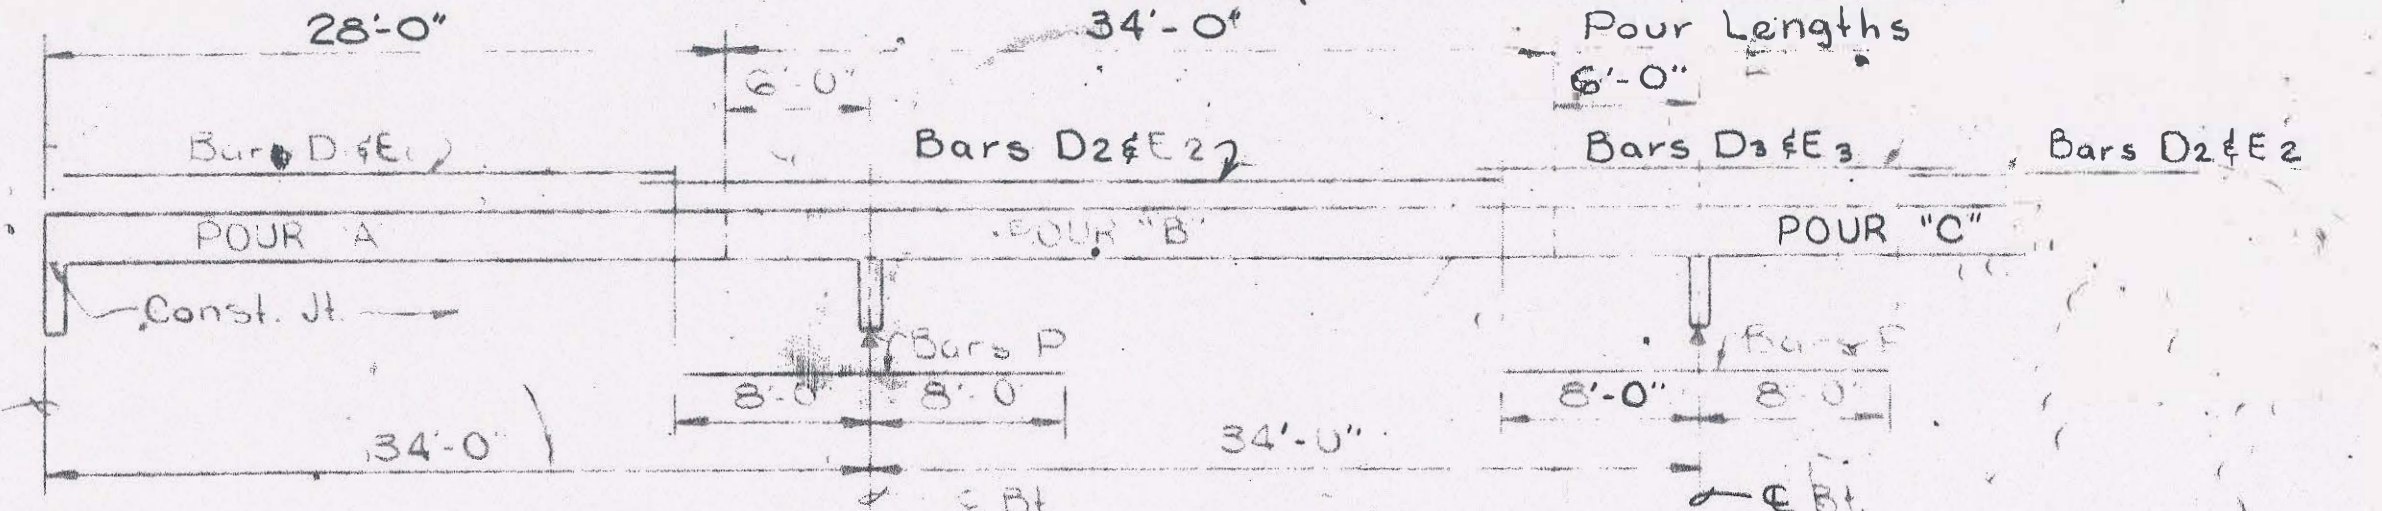 28'-0"
34'-0"
Pour Lengths
6'-0"
6'-0"
Bars D1 & E1
Bars D2 & E2
Bars D3 & E3
Bars D2 & E2
POUR "A"
POUR "B"
POUR "C"
Const. Jt.
Bars P
Bars P
8'-0"
8'-0"
8'-0"
8'-0"
34'-0"
34'-0"
℄ Bt.
℄ Bt.